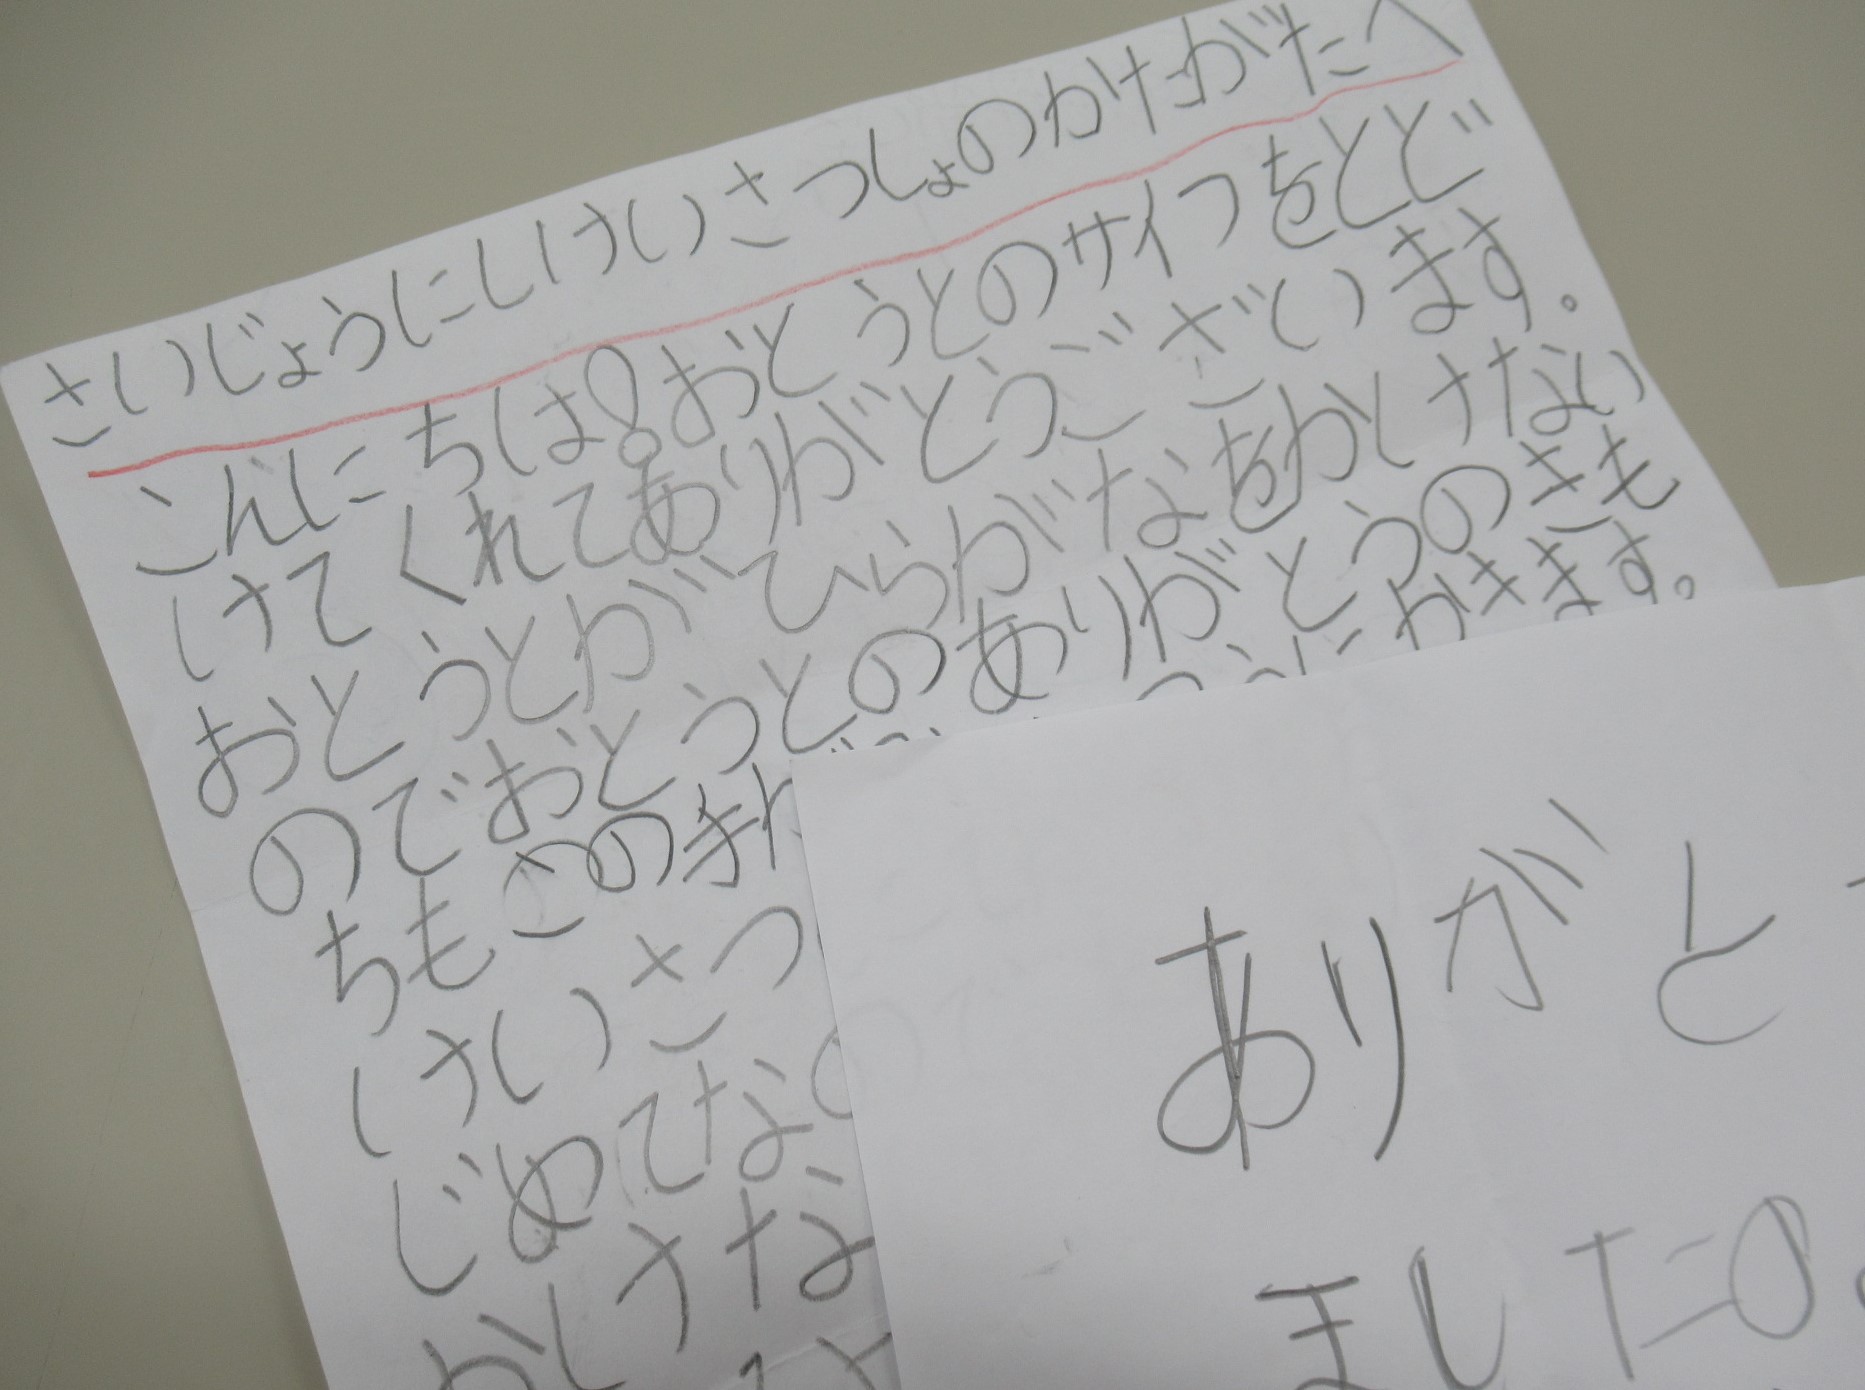 さいじょうにしけいさつしょのかけたがたへ
こんにちは!おとうとのサイフをとど
けてくれてありがとうございます。
おとうとがひらがなをかけない
のでおとうとのありがとうのきも
ちもこの手
うにかきます。
けいさつ
じめてなの
かけな
ありがと
ました